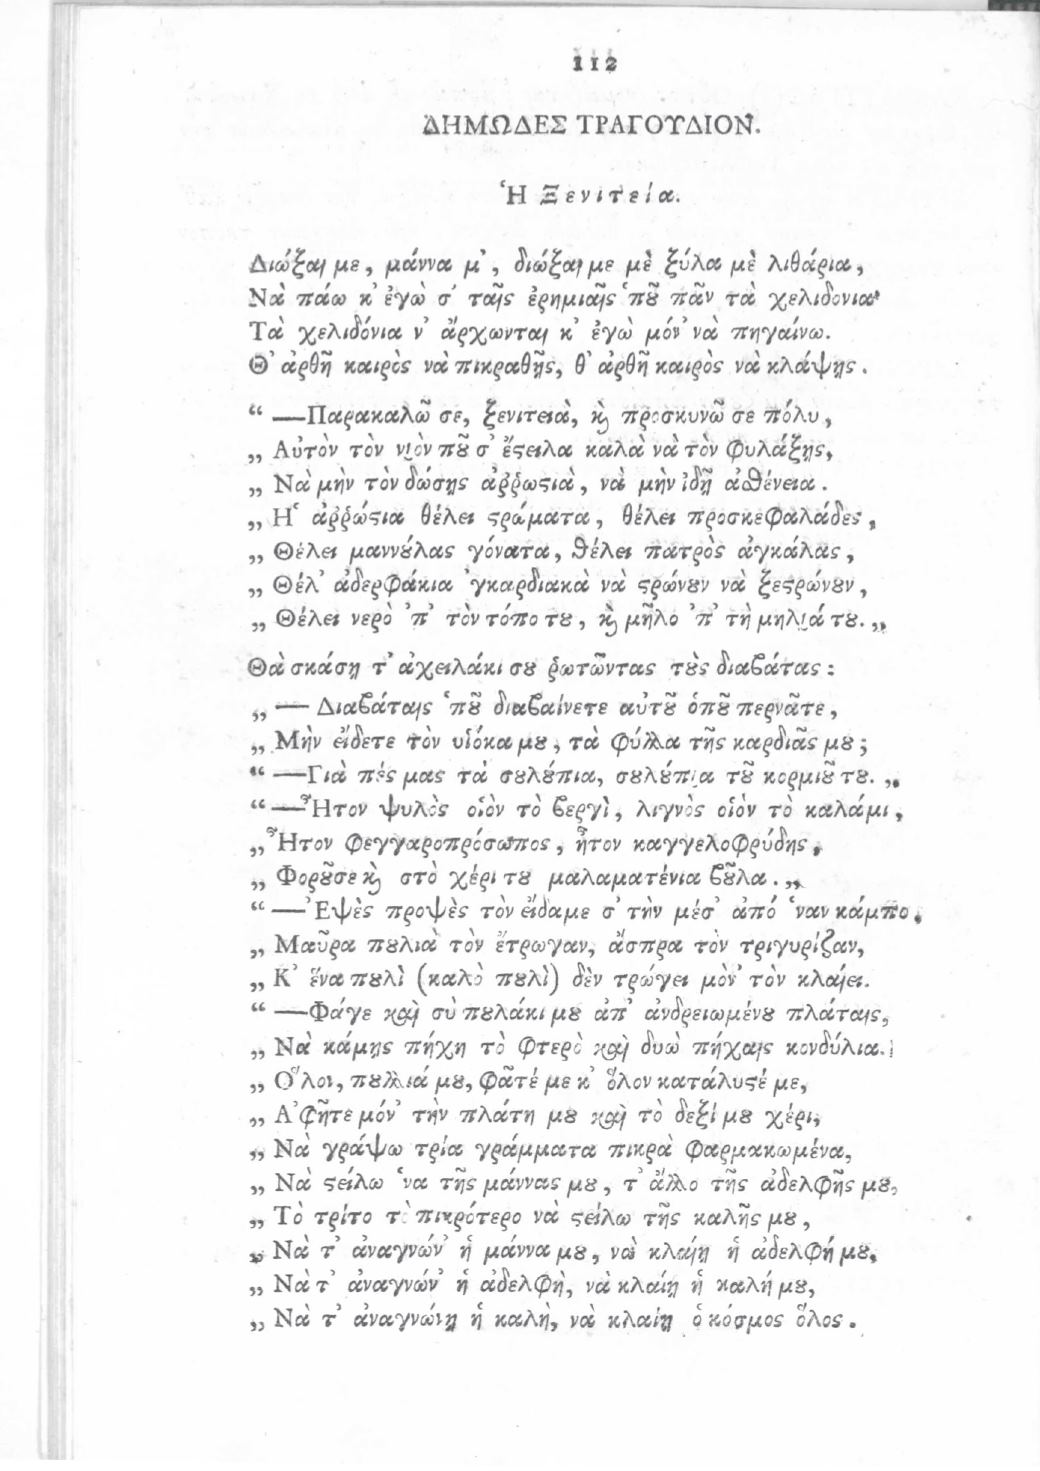 112
ΔΗΜΩΔΕΣ ΤΡΑΓΟΥΔΙΟΝ.
Ἡ Ξενιτεία.
Διώξαι με, μάννα μ', διώξαι με μὲ ξύλα μὲ λιθάρια,
Νὰ πάω κ' ἐγὼ σ' ταῖς ἐρημιαῖς 'ποῦ πᾶν τὰ χελιδονια·
Τὰ χελιδόνια ν' ἄρχωνται κ' ἐγὼ μόν' νὰ πηγαίνω.
Θ' ἀρθῆ καιρὸς νὰ πικραθῇς, θ' ἀρθῆ καιρὸς νὰ κλάψῃς.
“ —Παρακαλῶ σε, ξενιτειὰ, ϗ προσκυνῶ σε πόλυ,
„ Αὐτὸν τὸν υιὸν ποῦ σ' ἔςειλα καλὰ νὰ τὸν φυλάξῃς,
„ Νὰ μὴν τὸν δώσῃς ἀῤῥωςιὰ, νὰ μὴν ἰδῇ ἀσθένεια.
„ Ἡ ἀῤῥώςια θέλει ςρώματα, θέλει προσκεφαλάδες,
„ Θέλει μαννούλας γόνατα, θέλει πατρὸς ἀγκάλας,
„ Θέλ' ἀδερφάκια 'γκαρδιακὰ νὰ ςρώνουν νὰ ξεςρώνουν,
„ Θέλει νερὸ 'π' τὸν τόπο του, ϗ μῆλο 'π' τὴ μηλιά του. „
Θὰ σκάσῃ τ' ἀχειλάκι σου ῥωτῶντας τοὺς διαβάτας:
„ — Διαβάταις 'ποῦ διαβαίνετε αὐτοῦ ὁποῦ περνᾶτε,
„ Μὴν εἴδετε τὸν υἱόκα μου, τὰ φύλλα τῆς καρδιᾶς μου;
“ —Γιὰ πές μας τὰ σουλούπια, σουλούπια τοῦ κορμιοῦ του. „
“ —Ἦτον ψυλὸς οἷὸν τὸ βεργὶ, λιγνὸς οἷὸν τὸ καλάμι,
„ Ἦτον φεγγαροπρόσωπος, ἦτον καγγελοφρύδης,
„ Φοροῦσε ϗ στὸ χέρι του μαλαματένια βοῦλα. „
“ —Ἐψὲς προψὲς τὸν εἴδαμε σ' τὴν μέσ' ἀπό 'ναν κάμπο,
„ Μαῦρα πουλιὰ τὸν ἔτρωγαν, ἄσπρα τὸν τριγυρίζαν,
„ Κ' ἕνα πουλὶ (καλὸ πουλὶ) δὲν τρώγει μὸν' τὸν κλαίει.
“ —Φάγε καὶ σὺ πουλάκι μου ἀπ' ἀνδρειωμένου πλάταις,
„ Νὰ κάμῃς πήχη τὸ φτερὸ καὶ δυὼ πήχαις κονδύλια.
„ Ὅλοι, πουλλιά μου, φᾶτέ με κ' ὅλον κατάλυςέ με,
„ Ἀφῆτε μόν' τὴν πλάτη μου καὶ τὸ δεξί μου χέρι,
„ Νὰ γράψω τρία γράμματα πικρὰ φαρμακωμένα,
„ Νὰ ςείλω 'να τῆς μάννας μου, τ' ἄλλο τῆς ἀδελφῆς μου,
„ Τὸ τρίτο τὸ πικρότερο νὰ ςείλω τῆς καλῆς μου,
„ Νὰ τ' ἀναγνών' ἡ μάννα μου, νὰ κλαίῃ ἡ ἀδελφή μου,
„ Νὰ τ' ἀναγνών' ἡ ἀδελφὴ, νὰ κλαίῃ ἡ καλή μου,
„ Νὰ τ' ἀναγνώνῃ ἡ καλὴ, νὰ κλαίῃ ὁ κόσμος ὅλος.